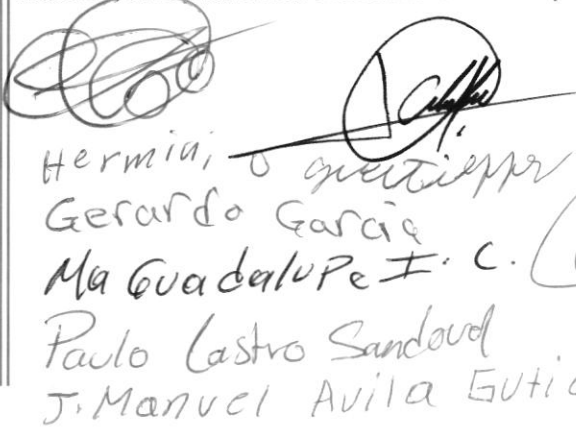 Herminio
Gerardo Garcia
Ma Guadalupe I. C.
Paulo Castro Sandoval
J. Manuel Avila Guti